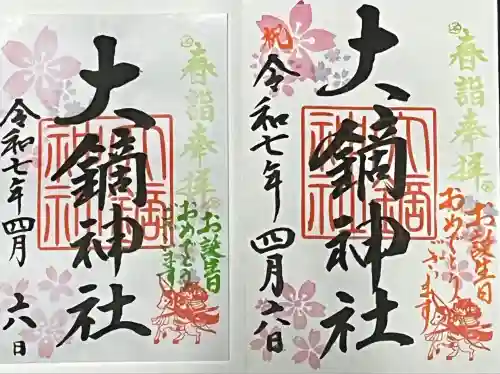 春詣奉拝
大鏑神社
令和七年四月六日
お誕生日
おめでとう
ございます
春詣奉拝
祝
大鏑神社
令和七年四月六日
お誕生日
おめでとう
ございます